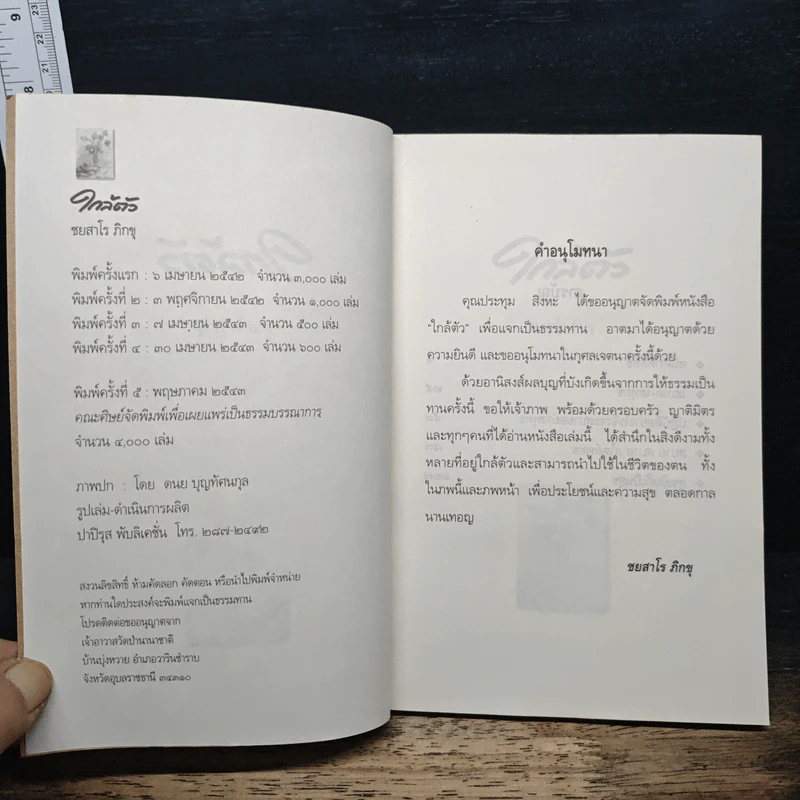 ใกล้ตัว
ชยสาโร ภิกขุ
พิมพ์ครั้งแรก : ๖ เมษายน ๒๕๔๒ จำนวน ๓,๐๐๐ เล่ม
พิมพ์ครั้งที่ ๒ : ๓ พฤศจิกายน ๒๕๔๒ จำนวน ๑,๐๐๐ เล่ม
พิมพ์ครั้งที่ ๓ : ๗ เมษายน ๒๕๔๓ จำนวน ๕๐๐ เล่ม
พิมพ์ครั้งที่ ๔ : ๓๐ เมษายน ๒๕๔๓ จำนวน ๖๐๐ เล่ม
พิมพ์ครั้งที่ ๕ : พฤษภาคม ๒๕๔๓
คณะศิษย์จัดพิมพ์เพื่อเผยแพร่เป็นธรรมบรรณาการ
จำนวน ๔,๐๐๐ เล่ม
ภาพปก : โดย ดนย บุญทัศนกุล
รูปเล่ม-ดำเนินการผลิต
ปาปิรุส พับลิเคชั่น โทร. ๒๘๗-๒๔๙๒
สงวนลิขสิทธิ์ ห้ามคัดลอก คัดตอน หรือนำไปพิมพ์จำหน่าย
หากท่านใดประสงค์จะพิมพ์แจกเป็นธรรมทาน
โปรดติดต่อขออนุญาตจาก
เจ้าอาวาสวัดป่านานาชาติ
บ้านบุ่งหวาย อำเภอวารินชำราบ
จังหวัดอุบลราชธานี ๓๔๓๑๐
คำอนุโมทนา
คุณประทุม สิงหะ ได้ขออนุญาตจัดพิมพ์หนังสือ
“ใกล้ตัว” เพื่อแจกเป็นธรรมทาน อาตมาได้อนุญาตด้วย
ความยินดี และขออนุโมทนาในกุศลเจตนาครั้งนี้ด้วย
ด้วยอานิสงส์ผลบุญที่บังเกิดขึ้นจากการให้ธรรมเป็น
ทานครั้งนี้ ขอให้เจ้าภาพ พร้อมด้วยครอบครัว ญาติมิตร
และทุกๆคนที่ได้อ่านหนังสือเล่มนี้ ได้สำนึกในสิ่งดีงามทั้ง
หลายที่อยู่ใกล้ตัวและสามารถนำไปใช้ในชีวิตของตน ทั้ง
ในภพนี้และภพหน้า เพื่อประโยชน์และความสุข ตลอดกาล
นานเทอญ
ชยสาโร ภิกขุ
9
8
23
22
21